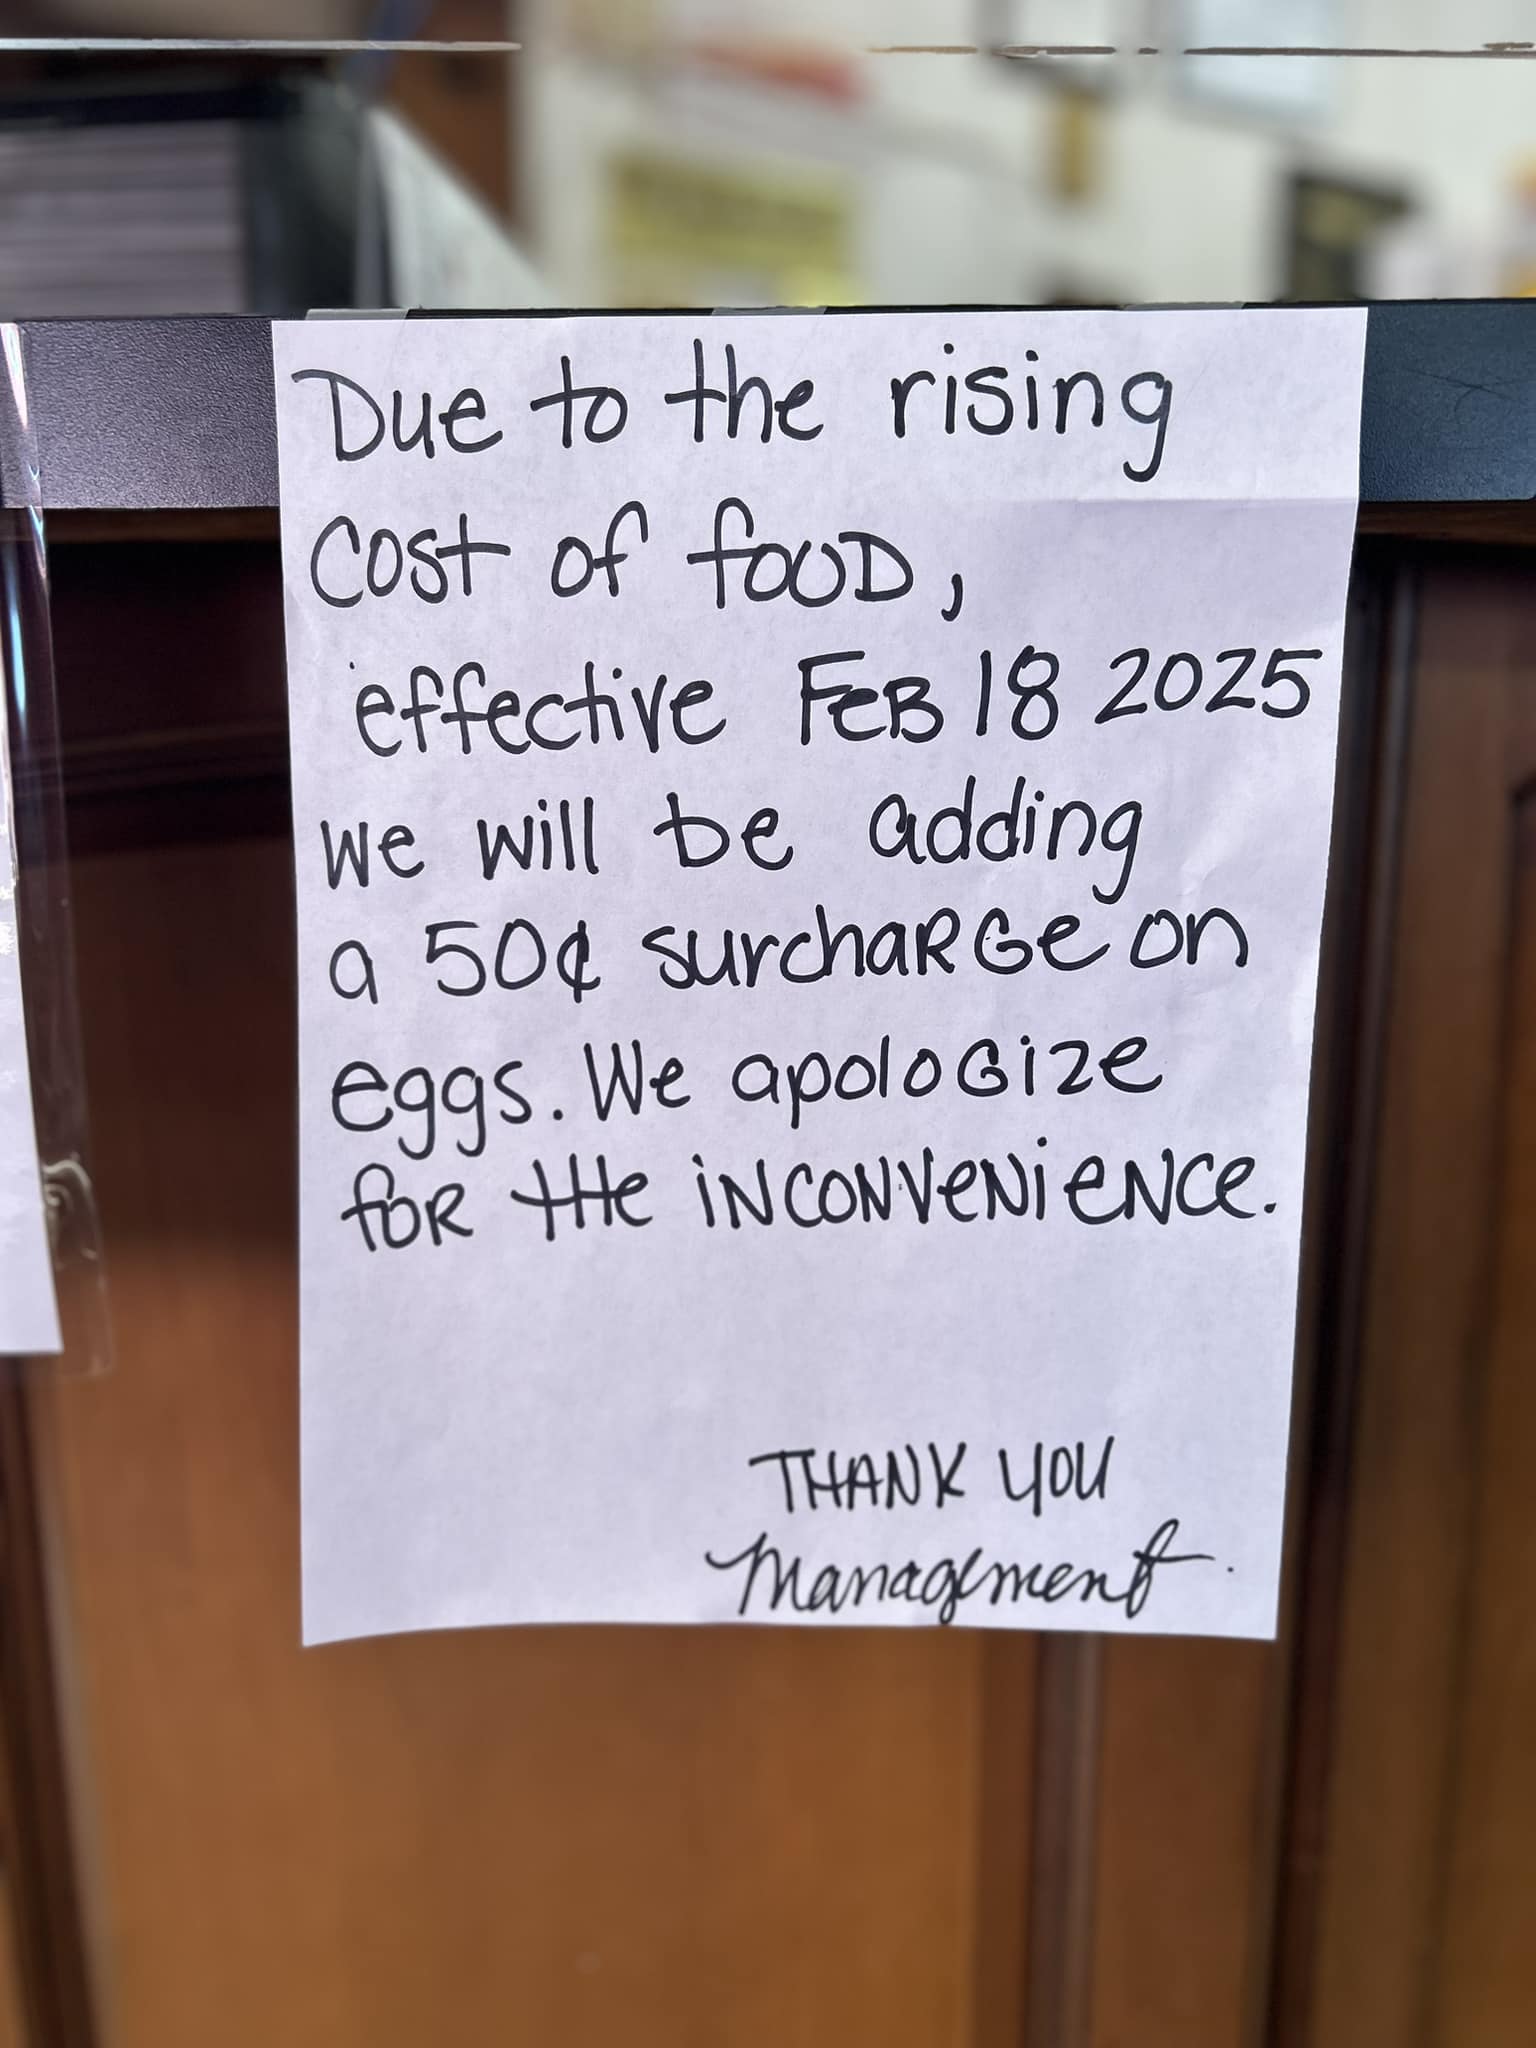 Due to the rising
Cost of fooD,
effective FeB 18 2025
we will be adding
a 50¢ surchaRGe on
eggs. We apoloGize
foR tHe iNCONVeNieNCe.
THANK YOU
Management.